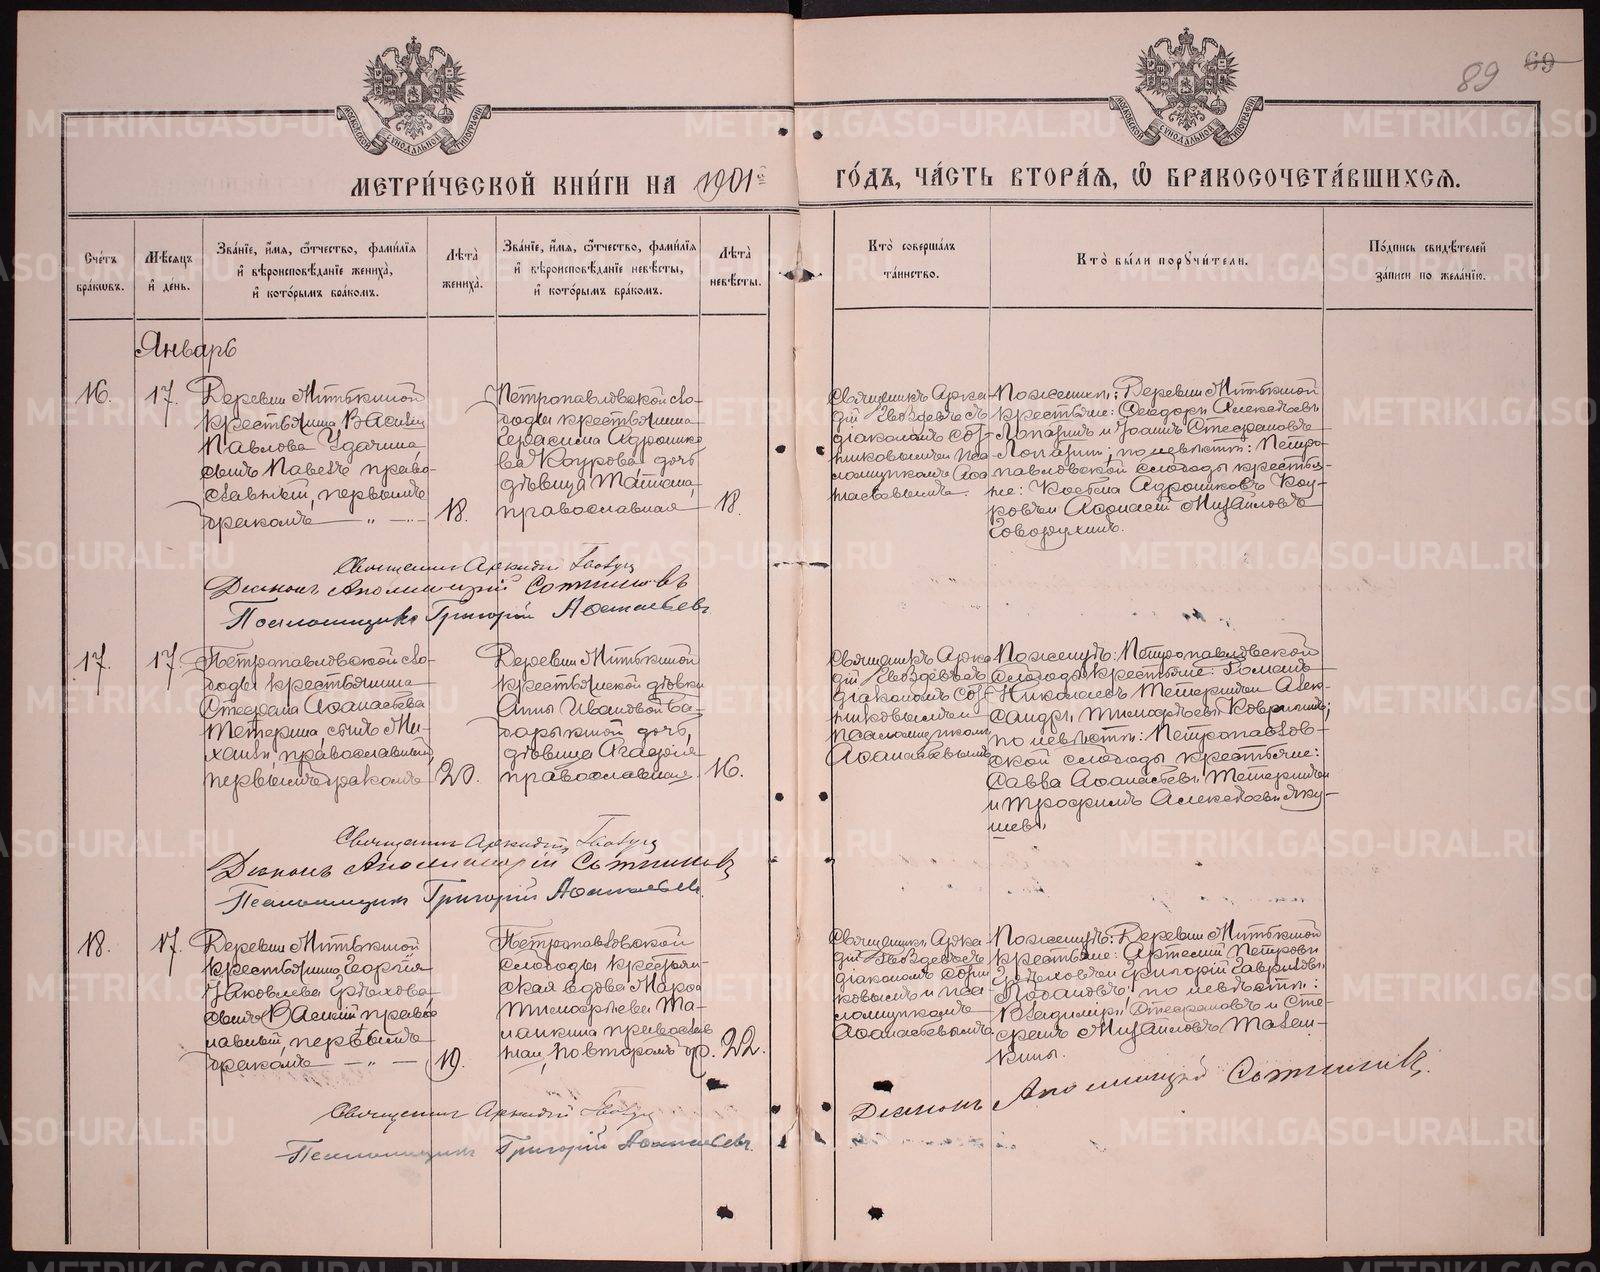 89
69
МЕТРИ́ЧЕСКОЙ КНИ́ГИ НА 1901й
ГО́ДЪ, ЧА́СТЬ ВТОРА́Я, Ѡ БРАКОСОЧЕТА́ВШИХСЯ.
Сче́тъ бра́кѡвъ.
Мѣ́сяцъ и҆ де́нь.
Зва́нїе, и҆́мя, ѻ҆́тчество, фами́лїя
и҆ вѣроисповѣ́данїе жениха̀,
и҆ кото́рымъ бра́комъ.
Лѣта̀
жениха̀.
Зва́нїе, и҆́мя, ѻ҆́тчество, фами́лїя
и҆ вѣроисповѣ́данїе невѣ́сты,
и҆ кото́рымъ бра́комъ.
Лѣта̀
невѣ́сты.
Кто̀ соверша́лъ
та́инство.
Кто̀ бы́ли порꙋчи́тели.
По́дпись свидѣ́телей
за́писи по жела́нїю.
Январь
16.
17.
Деревни Митькиной
крестьянина Василія
Павлова Удачина
сынъ Павелъ право-
славный, первымъ
бракомъ — „ —
18.
Петропавловской сло-
боды крестьянина
Герасима Адроника-
ва Коурова дочь
дѣвица Татіана,
православная
18.
Священникъ Арка-
дій Гвоздевъ съ
діакономъ Сот-
никовымъ и пса-
ломщикомъ Аѳа-
насьевымъ.
По женихѣ: Деревни Митькиной
крестьяне: Ѳеодоръ Алексѣевъ
Лопатинъ и Іоаннъ Стефановъ
Лопатинъ; по невѣстѣ: Петро-
павловской слободы крестья-
не: Косьма Адрониковъ Коу-
ровъ и Аѳанасій Михайловъ
Говорухинъ.
Священникъ Аркадій Гвоздев
Діаконъ Аполлинарій Сотниковъ
Псаломщикъ Григорій Аѳанасьевъ
17.
17.
Петропавловской сло-
боды крестьянина
Стефана Аѳанасьева
Тетерина, сынъ Ми-
хаилъ, православный,
первымъ бракомъ
20.
Деревни Митькиной
крестьянской дѣвки
Анны Ивановой Ба-
барыкиной дочь,
дѣвица Агафія
православная.
16.
Священникъ Арка-
дій Гвоздевъ съ
діакономъ Сот-
никовымъ и
псаломщикомъ
Аѳанасьевымъ
По женихѣ: Петропавловской
слободы крестьяне: Романъ
Николаевъ Тетеринъ и Алек-
сандръ Тимофѣевъ Ковригинъ;
по невѣстѣ: Петропавлов-
ской слободы крестьяне:
Савва Аѳанасьевъ Тетеринъ
и Трофимъ Алексѣевъ Яку-
шевъ.
Священникъ Аркадій Гвоздев
Діаконъ Аполлинарій Сотниковъ
Псаломщикъ Григорій Аѳанасьевъ.
18.
17.
Деревни Митькиной
крестьянина Георгія
Яковлева Грѣхова
сынъ Василій право-
славный, первымъ
бракомъ — „ —
19.
Петропавловской
слободы крестьян-
ская вдова Марѳа
Тимофѣева Та-
ланкина православ-
ная, по второму бр.
22.
Священникъ Арка-
дій Гвоздевъ съ
діакономъ Сотни-
ковымъ и пса-
ломщикомъ
Аѳанасьевымъ
По женихѣ: Деревни Митькиной
крестьяне: Артемій Петровъ
Грѣховъ и Григорій Гавриловъ
Лобановъ; по невѣстѣ:
Владиміръ Стефановъ и Сте-
фанъ Михайловъ Талан-
кины.
Діаконъ Аполлинарій Сотниковъ.
Священникъ Аркадій Гвоздев
Псаломщикъ Григорій Аѳанасьевъ.